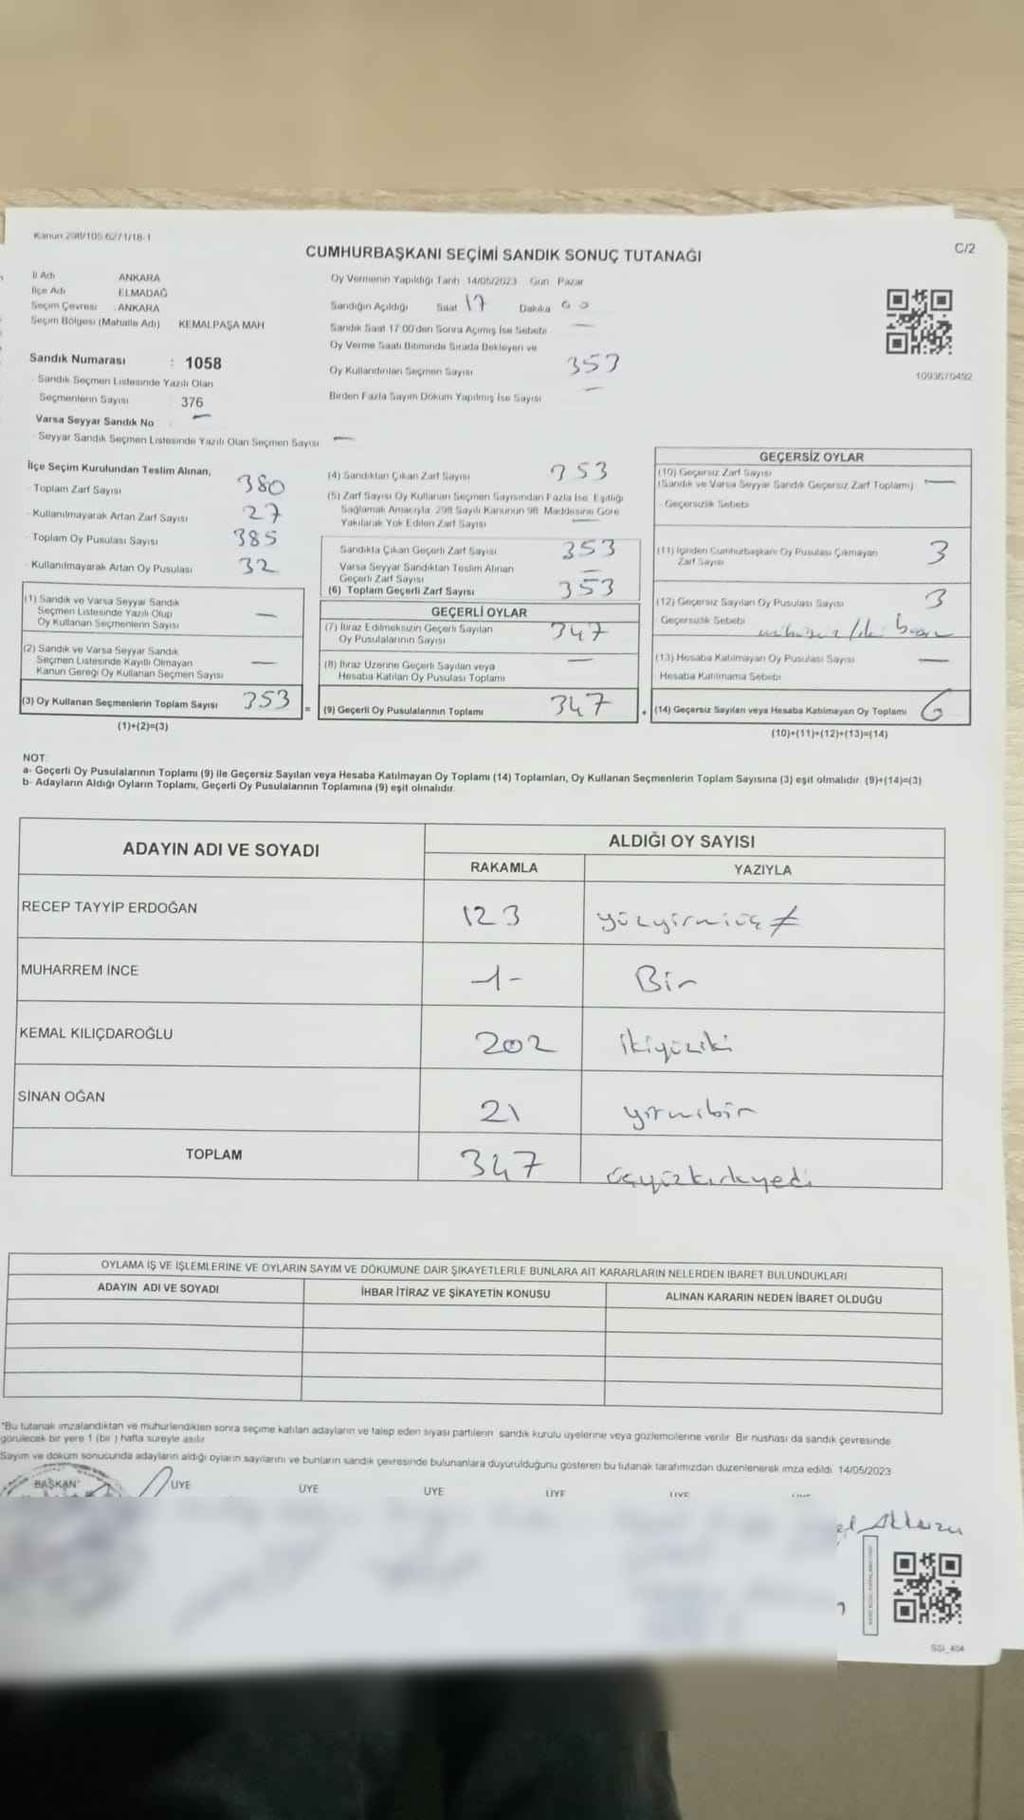 Kanun 298/105 6271/18-1
CUMHURBAŞKANI SEÇİMİ SANDIK SONUÇ TUTANAĞI
C/2
İl Adı ANKARA
İlçe Adı ELMADAĞ
Seçim Çevresi ANKARA
Seçim Bölgesi (Mahalle Adı) KEMALPAŞA MAH
Sandık Numarası : 1058
Sandık Seçmen Listesinde Yazılı Olan
Seçmenlerin Sayısı 376
Varsa Seyyar Sandık No —
Seyyar Sandık Seçmen Listesinde Yazılı Olan Seçmen Sayısı —
Oy Vermenin Yapıldığı Tarih 14/05/2023 Gün Pazar
Sandığın Açıldığı Saat 17 Dakika 00
Sandık Saat 17:00'den Sonra Açılmış İse Sebebi —
Oy Verme Saati Bitiminde Sırada Bekleyen ve
Oy Kullandırılan Seçmen Sayısı 353
Birden Fazla Sayım Döküm Yapılmış İse Sayısı —
1093670492
İlçe Seçim Kurulundan Teslim Alınan,
Toplam Zarf Sayısı 380
Kullanılmayarak Artan Zarf Sayısı 27
Toplam Oy Pusulası Sayısı 385
Kullanılmayarak Artan Oy Pusulası 32
(1) Sandık ve Varsa Seyyar Sandık
Seçmen Listesinde Yazılı Olup
Oy Kullanan Seçmenlerin Sayısı —
(2) Sandık ve Varsa Seyyar Sandık
Seçmen Listesinde Kayıtlı Olmayan
Kanun Gereği Oy Kullanan Seçmen Sayısı —
(3) Oy Kullanan Seçmenlerin Toplam Sayısı 353
(1)+(2)=(3)
(4) Sandıktan Çıkan Zarf Sayısı 353
(5) Zarf Sayısı Oy Kullanan Seçmen Sayısından Fazla İse, Eşitliği
Sağlamak Amacıyla, 298 Sayılı Kanunun 98. Maddesine Göre
Yakılarak Yok Edilen Zarf Sayısı —
Sandıkta Çıkan Geçerli Zarf Sayısı 353
Varsa Seyyar Sandıktan Teslim Alınan
Geçerli Zarf Sayısı —
(6) Toplam Geçerli Zarf Sayısı 353
GEÇERLİ OYLAR
(7) İtiraz Edilmeksizin Geçerli Sayılan
Oy Pusulalarının Sayısı 347
(8) İtiraz Üzerine Geçerli Sayılan veya
Hesaba Katılan Oy Pusulası Toplamı —
= (9) Geçerli Oy Pusulalarının Toplamı 347
GEÇERSİZ OYLAR
(10) Geçersiz Zarf Sayısı
(Sandık ve Varsa Seyyar Sandık Geçersiz Zarf Toplamı) —
Geçersizlik Sebebi
(11) İçinden Cumhurbaşkanı Oy Pusulası Çıkmayan
Zarf Sayısı 3
(12) Geçersiz Sayılan Oy Pusulası Sayısı 3
Geçersizlik Sebebi
(13) Hesaba Katılmayan Oy Pusulası Sayısı —
Hesaba Katılmama Sebebi
+ (14) Geçersiz Sayılan veya Hesaba Katılmayan Oy Toplamı 6
(10)+(11)+(12)+(13)=(14)
NOT
a- Geçerli Oy Pusulalarının Toplamı (9) ile Geçersiz Sayılan veya Hesaba Katılmayan Oy Toplamı (14) Toplamları, Oy Kullanan Seçmenlerin Toplam Sayısına (3) eşit olmalıdır. (9)+(14)=(3)
b- Adayların Aldığı Oyların Toplamı, Geçerli Oy Pusulalarının Toplamına (9) eşit olmalıdır.
ADAYIN ADI VE SOYADI ALDIĞI OY SAYISI
RAKAMLA YAZIYLA
RECEP TAYYİP ERDOĞAN 123 yüzyirmiüç
MUHARREM İNCE -1- Bir
KEMAL KILIÇDAROĞLU 202 ikiyüziki
SİNAN OĞAN 21 yirmibir
TOPLAM 347 üçyüzkırkyedi
OYLAMA İŞ VE İŞLEMLERİNE VE OYLARIN SAYIM VE DÖKÜMÜNE DAİR ŞİKAYETLERLE BUNLARA AİT KARARLARIN NELERDEN İBARET BULUNDUKLARI
ADAYIN ADI VE SOYADI İHBAR İTİRAZ VE ŞİKAYETİN KONUSU ALINAN KARARIN NEDEN İBARET OLDUĞU
*Bu tutanak imzalandıktan ve mühürlendikten sonra seçime katılan adayların ve talep eden siyasi partilerin sandık kurulu üyelerine veya gözlemcilerine verilir. Bir nüshası da sandık çevresinde
görülecek bir yere 1 (bir) hafta süreyle asılır.
Sayım ve döküm sonucunda adayların aldığı oyların sayılarını ve bunların sandık çevresinde bulunanlara duyurulduğunu gösteren bu tutanak tarafımızdan düzenlenerek imza edildi. 14/05/2023
BAŞKAN ÜYE ÜYE ÜYE ÜYE ÜYE
SSI_404